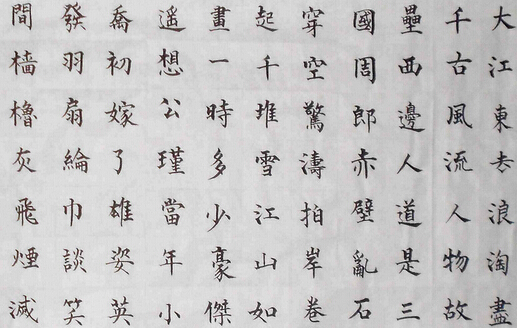 大江東去浪淘盡
千古風流人物故
壘西邊人道是三
國周郎赤壁亂石
穿空驚濤拍岸卷
起千堆雪江山如
畫一時多少豪傑
遙想公瑾當年小
喬初嫁了雄姿英
發羽扇綸巾談笑
間檣櫓灰飛煙滅